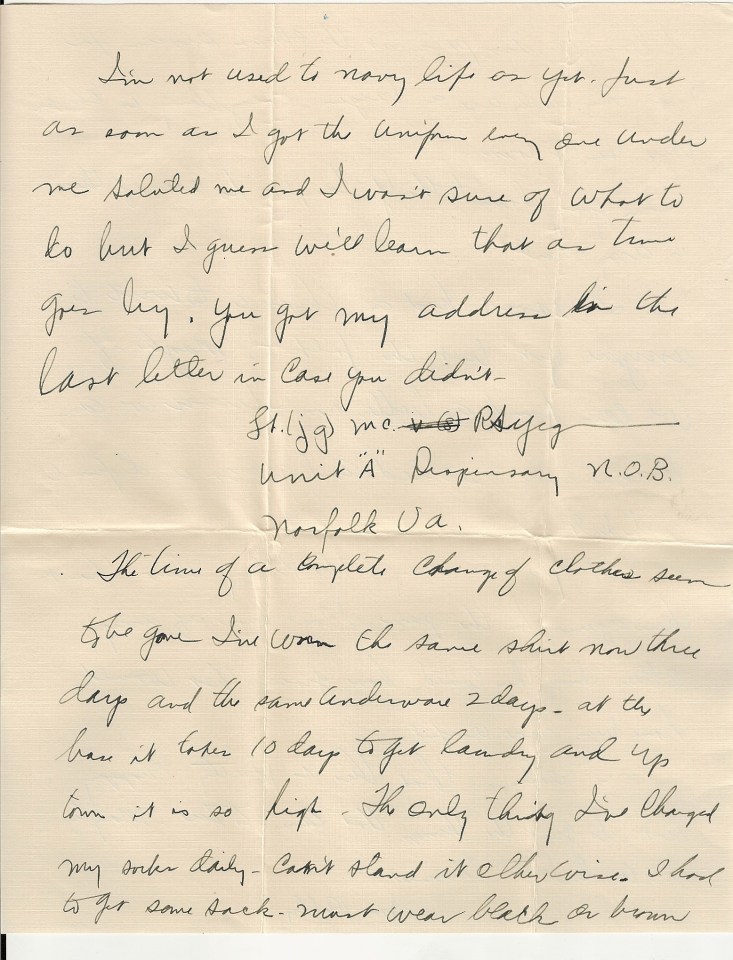 I'm not used to navy life as yet. Just
as soon as I got the uniform every one under
me saluted me and I wasn't sure of what to
do but I guess we'll learn that as time
goes by. You got my address in the
last letter in case you didn't -
Lt. (jg) M.C. v (s)
Unit "A" Dispensary N.O.B.
Norfolk Va.
The time of a complete change of clothes seem
to be gone I've worn the same shirt now three
days and the same underware 2 days - at the
base it takes 10 days to get laundry and up
town it is so high - The only thing I've changed
my socks daily - can't stand it otherwise. I had
to get some sock - must wear black or brown